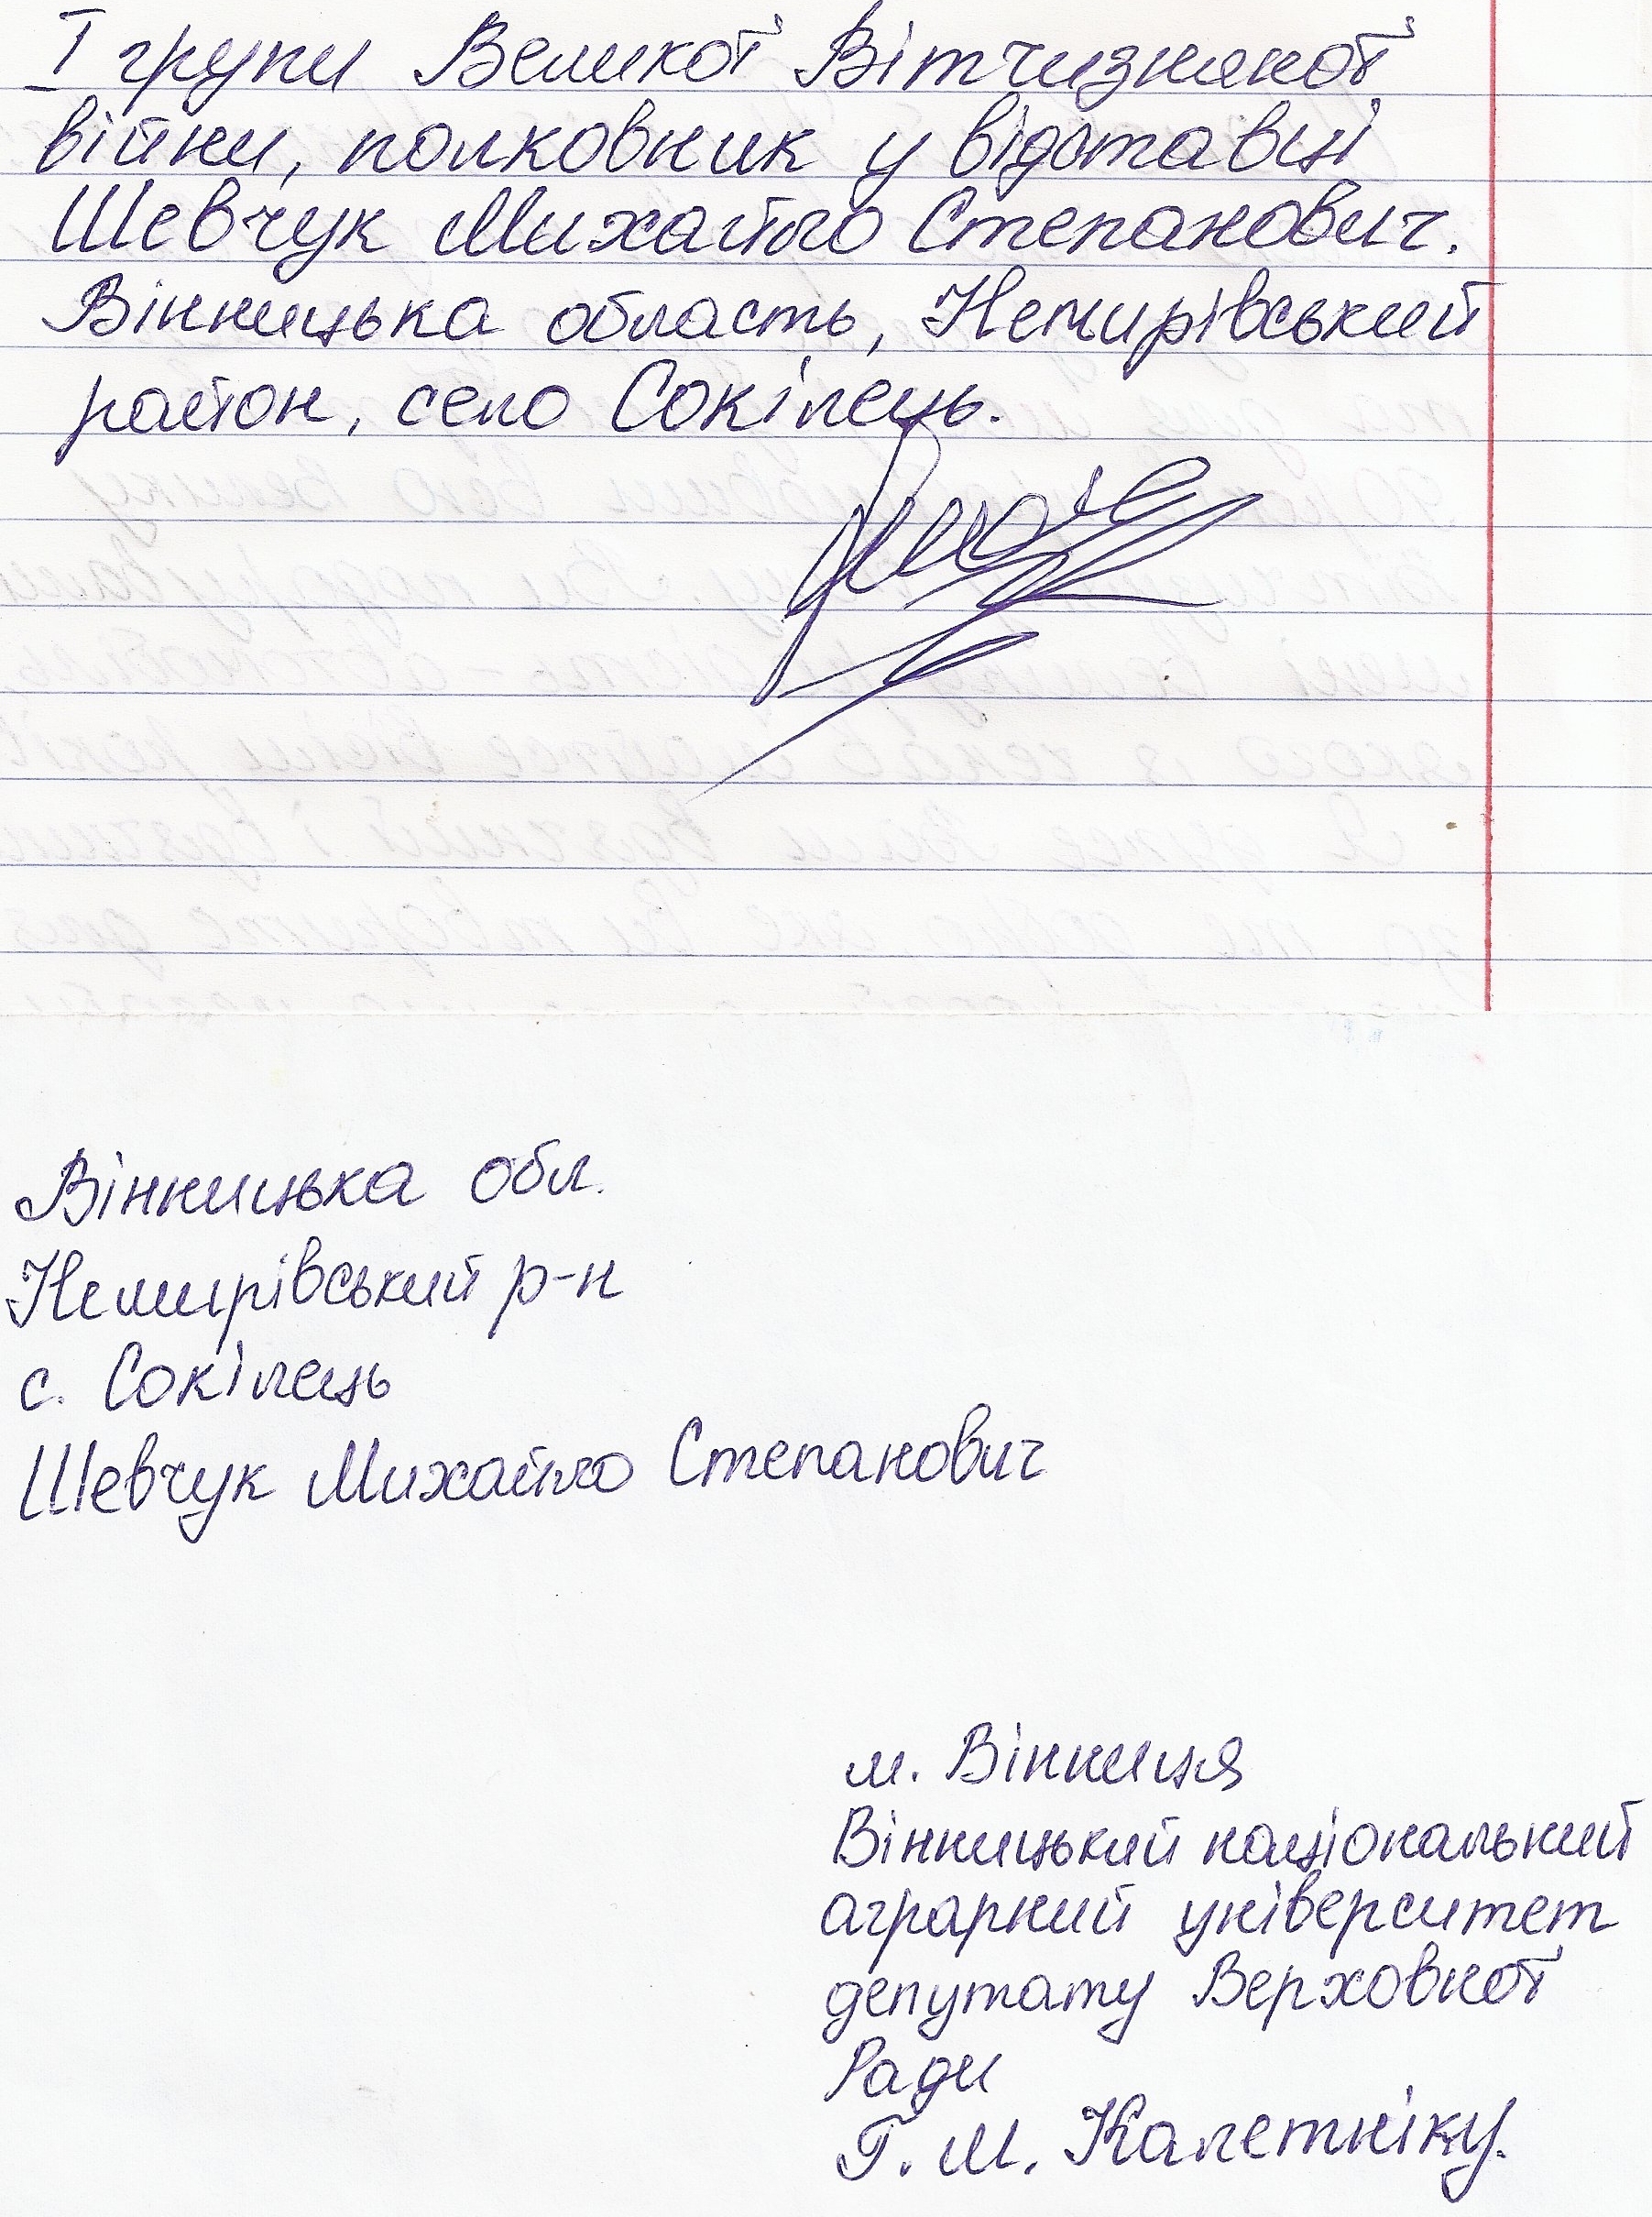 І групи Великої Вітчизняної
війни, полковник у відставці
Шевчук Михайло Степанович.
Вінницька область, Немирівський
район, село Сокілець.
Вінницька обл.
Немирівський р-н
с. Сокілець
Шевчук Михайло Степанович
м. Вінниця
Вінницький національний
аграрний університет
депутату Верховної
Ради
Г. М. Калетніку.